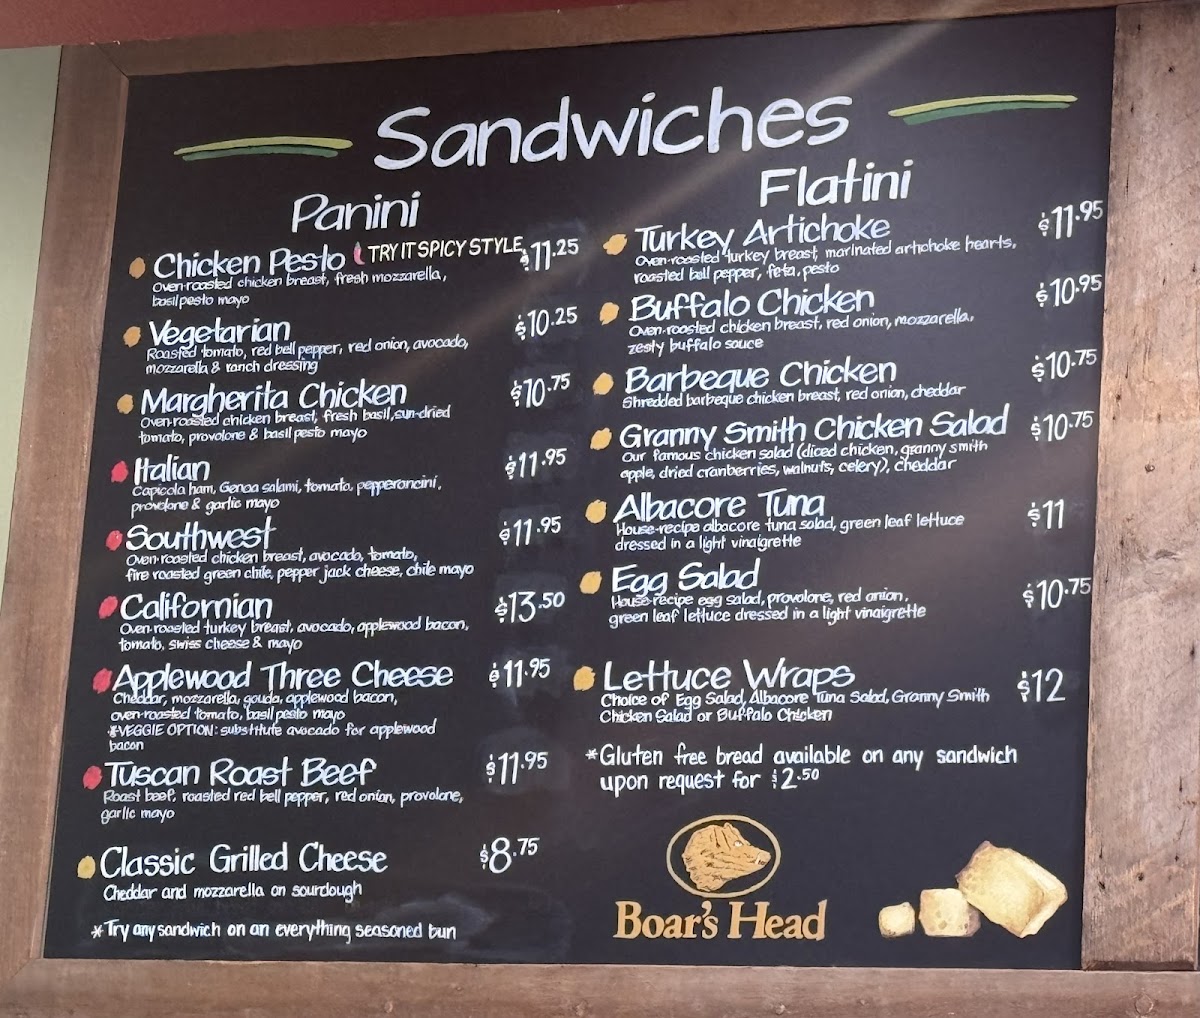 Sandwiches
Panini
Chicken Pesto TRY IT SPICY STYLE $11.25
Oven-roasted chicken breast, fresh mozzarella,
basil pesto mayo
Vegetarian $10.25
Roasted tomato, red bell pepper, red onion, avocado,
mozzarella & ranch dressing
Margherita Chicken $10.75
Oven-roasted chicken breast, fresh basil, sun-dried
tomato, provolone & basil pesto mayo
Italian $11.95
Capicola ham, Genoa salami, tomato, pepperoncini,
provolone & garlic mayo
Southwest $11.95
Oven-roasted chicken breast, avocado, tomato,
fire roasted green chile, pepper jack cheese, chile mayo
Californian $13.50
Oven-roasted turkey breast, avocado, applewood bacon,
tomato, swiss cheese & mayo
Applewood Three Cheese $11.95
Cheddar, mozzarella, gouda, applewood bacon,
oven-roasted tomato, basil pesto mayo
*VEGGIE OPTION: substitute avocado for applewood
bacon
Tuscan Roast Beef $11.95
Roast beef, roasted red bell pepper, red onion, provolone,
garlic mayo
Classic Grilled Cheese $8.75
Cheddar and mozzarella on sourdough
*Try any sandwich on an everything seasoned bun
Flatini
Turkey Artichoke $11.95
Oven-roasted turkey breast, marinated artichoke hearts,
roasted bell pepper, feta, pesto
Buffalo Chicken $10.95
Oven-roasted chicken breast, red onion, mozzarella,
zesty buffalo sauce
Barbeque Chicken $10.75
Shredded barbeque chicken breast, red onion, cheddar
Granny Smith Chicken Salad $10.75
Our famous chicken salad (diced chicken, granny smith
apple, dried cranberries, walnuts, celery), cheddar
Albacore Tuna $11
House-recipe albacore tuna salad, green leaf lettuce
dressed in a light vinaigrette
Egg Salad $10.75
House-recipe egg salad, provolone, red onion,
green leaf lettuce dressed in a light vinaigrette
Lettuce Wraps $12
Choice of Egg Salad, Albacore Tuna Salad, Granny Smith
Chicken Salad or Buffalo Chicken
*Gluten free bread available on any sandwich
upon request for $2.50
Boar's Head